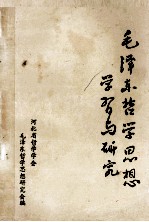 毛泽东哲学思想
学习与研究
河北省哲学学会
毛泽东哲学思想研究会编